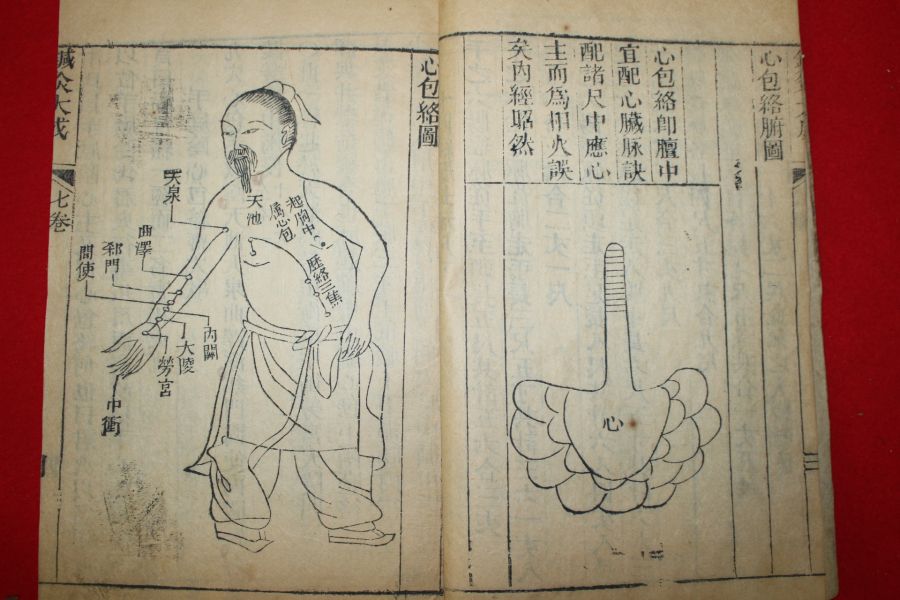 心包絡腑圖
心包絡即膻中
宜配心臟脉訣
配諸尺中應心
主而為相火誤
矣內經昭然
心
心包絡圖
起胸中
屬心包
歷絡三焦
天池
天泉
曲澤
郄門
間使
內關
大陵
勞宮
中衝
鍼灸大成
七卷